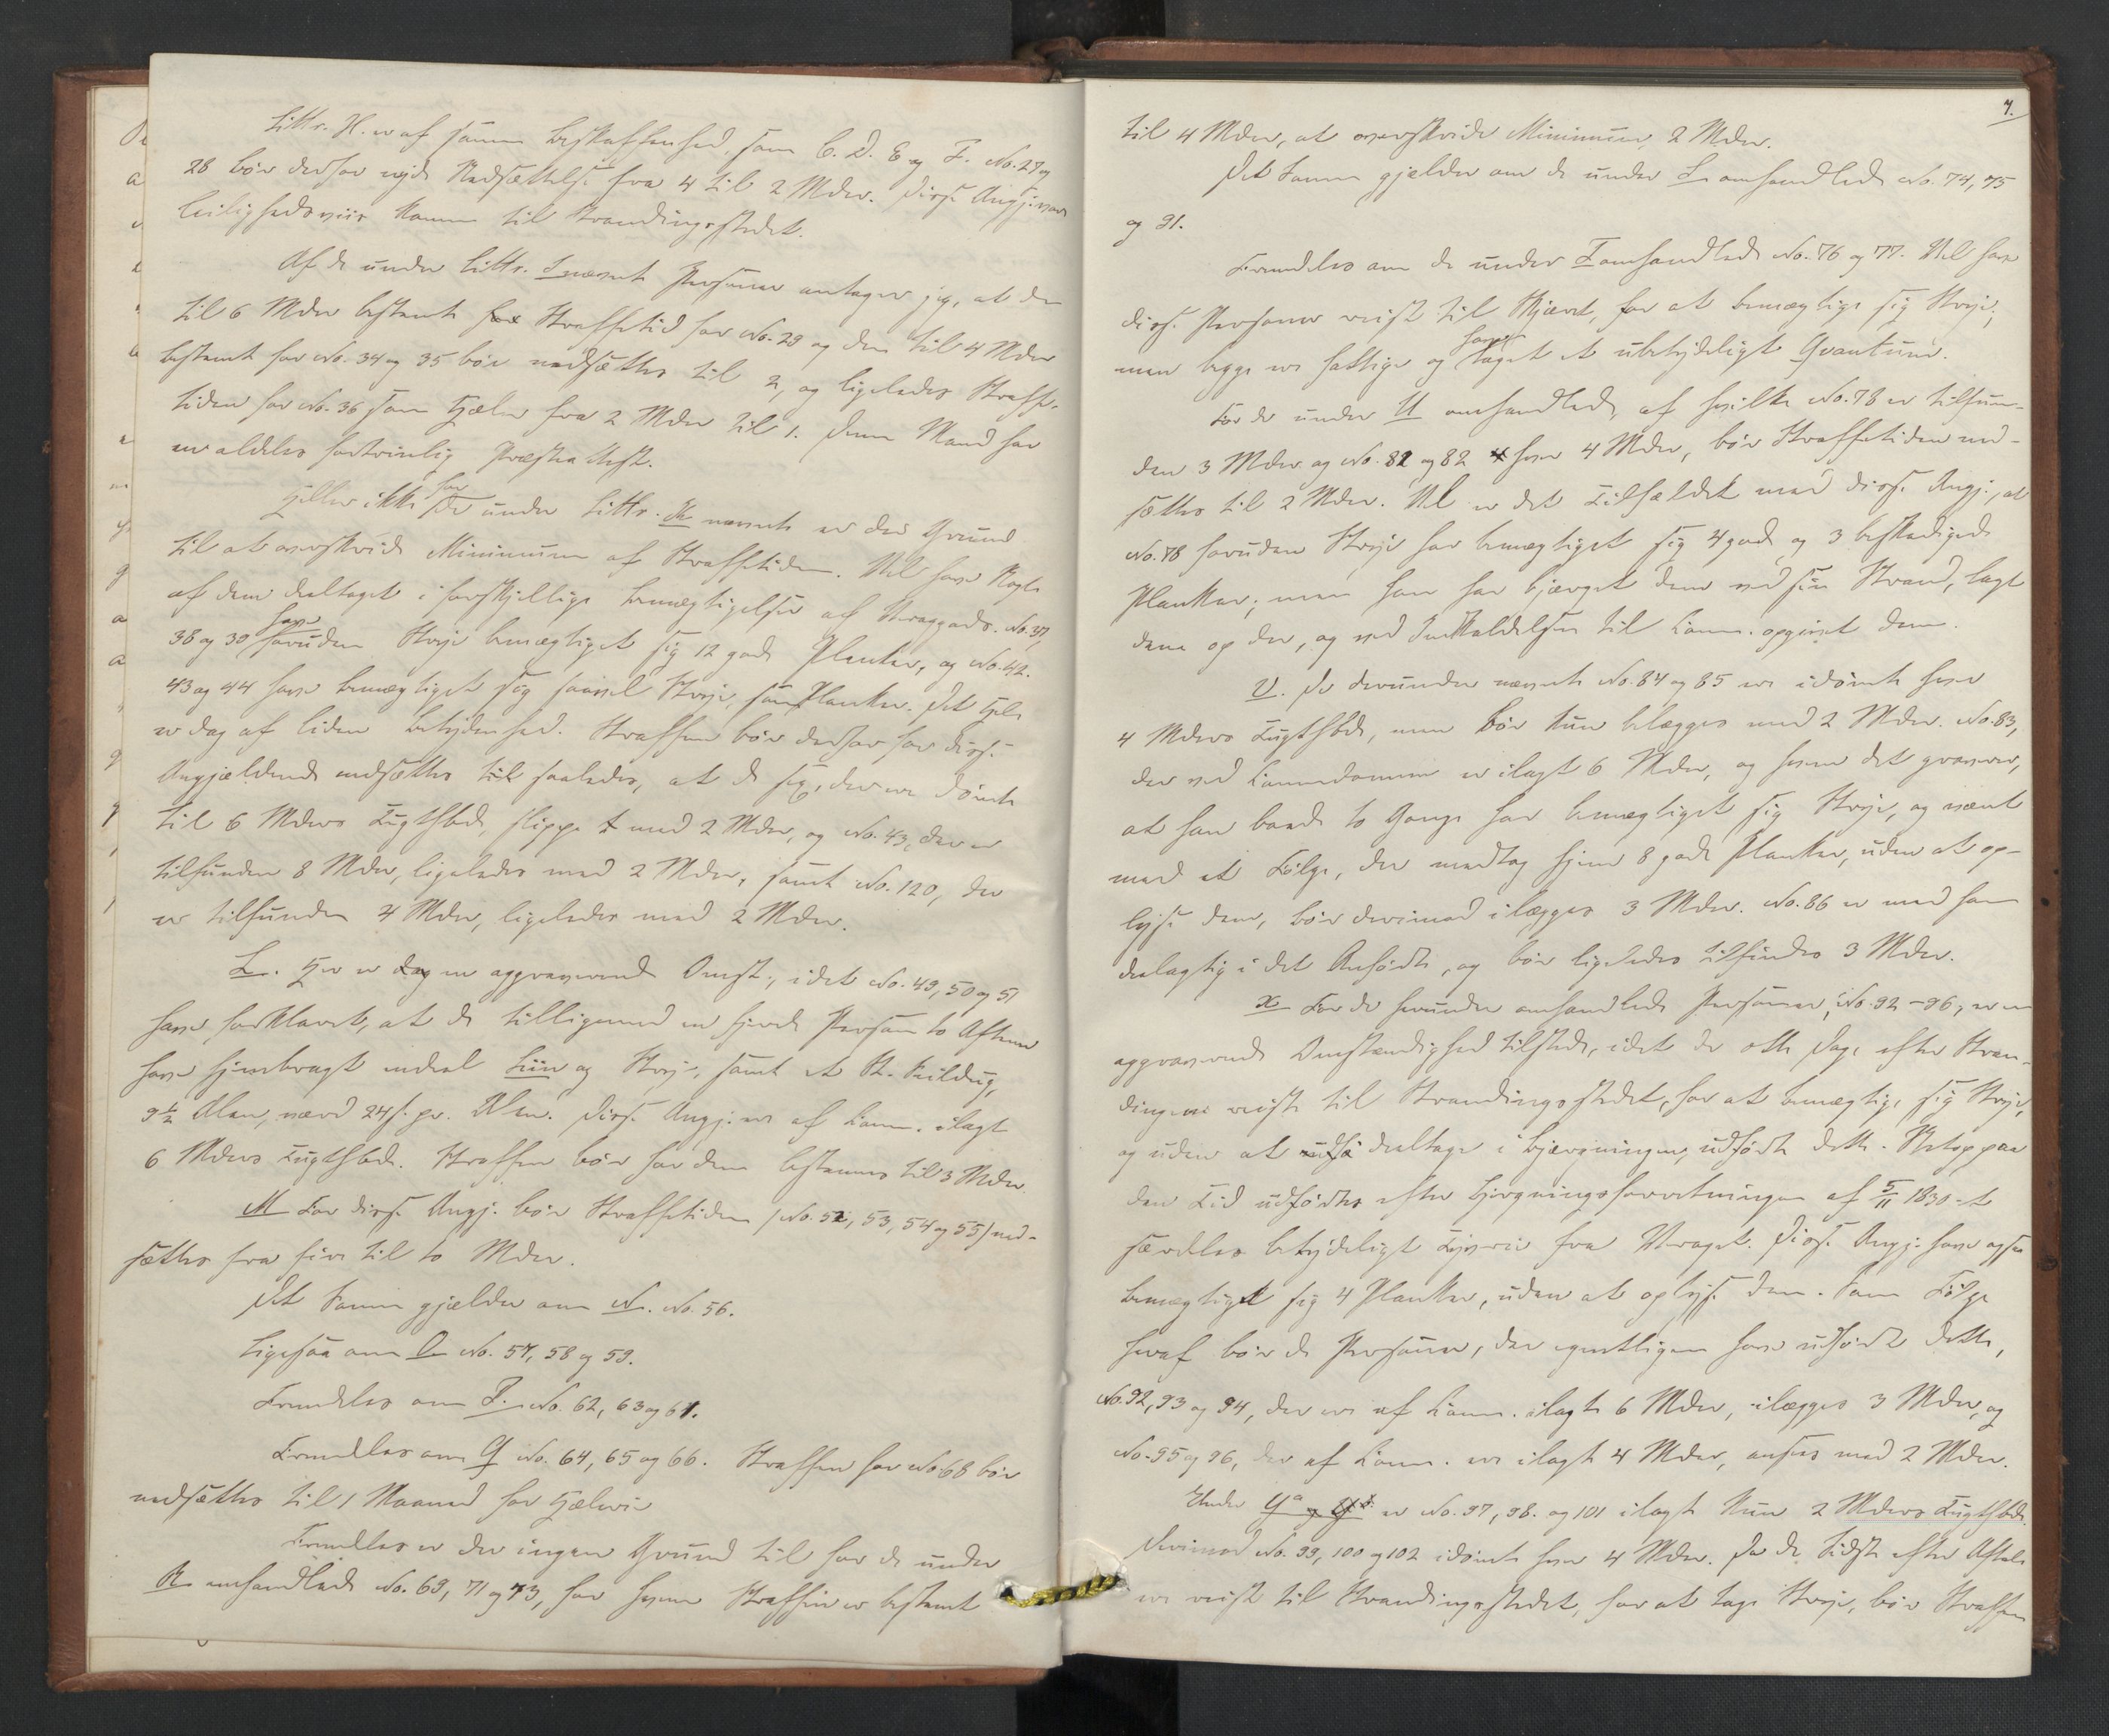 Littr. H. er af samme Beskaffenhed, som C. D. E og F. No. 27 og
28 bør derfor nyde Nedsættelse fra 4 til 2 Mdr. Disse Angj. vare
leilighedsviis komne til Strandingsstedet.
Af de under Littr. I nævnte Personer antager jeg, at den
til 6 Mdr bestemte Straffetid for No. 29 og den til 4 Mdr
bestemt for No. 34 og 35 bør nedsættes til 2, og ligeledes Straffe-
tiden for No. 36 som Hæler fra 2 Mdr til 1. Denne Mand har
en aldeles fortrinlig Præsteattest.
Heller ikke for de under Littr. K nævnte er der Grund
til at overskride Minimum af Straffetiden. Vel have Nogle
af dem deeltaget i forskjellige Bemægtigelser af Vraggods. No. 37,
38 og 39 have foruden Strye bemægtiget sig 12 gode Planker, og No. 42.
43 og 44 have bemægtiget sig saavel Strye, som Planker. Det Hele
er dog af liden Betydenhed. Straffen bør derfor for disse
Angjældende nedsættes til saaledes, at de sex, der ere dømte
til 6 Mdrs Tugthbd, slippe med 2 Mdr, og No. 43, der er
tilfunden 8 Mdr, ligeledes med 2 Mdr, samt No. 120, der
er tilfunden 4 Mdr, ligeledes med 2 Mdr.
L. Her er dog en aggraverende Omst., idet No. 49, 50 og 51
have forklaret, at de tilligemed en fjerde Person to Aftener
have hjembragt endeel Liin og Strye, samt et St. Seildug,
9½ Alen, værd 24 s. pr. Alen. Disse Angj. ere af Comm. ilagt
6 Mdrs Tugthbd. Straffen bør for dem bestemmes til 3 Mdr.
M For disse Angj. bør Straffetiden (No. 52, 53, 54 og 55) ned-
sættes fra fire til to Mdr.
Det samme gjælder om N. No. 56.
Ligesaa om O No. 57, 58 og 59.
Fremdeles om P. No. 62, 63 og 61.
Fremdeles om Q No. 64, 65 og 66. Straffen for No 68 bør
nedsættes til 1 Maaned for Hæleri
Fremdeles er der ingen Grund til for de under
R omhandlede No. 69, 71 og 73, for hvem Straffen er bestemt
7.
til 4 Mdr, at overskride Minimum, 2 Mdr.
Det Samme gjælder om de under S omhandlede No. 74, 75
og 91.
Fremdeles om de under T omhandlede No. 76 og 77. Vel have
disse Personer reist til Skjæret, for at bemægtige sig Strye,
men begge ere fattige og have taget et ubetydeligt Qvantum.
For de under U omhandlede, af hvilke No. 78 er tilfun-
den 3 Mdr. og No. 81 og 82 hver 4 Mdr, bør Straffetiden ned-
sættes til 2 Mdr. Vel er det Tilfældet med disse Angj., at
No. 78 foruden Strye har bemægtiget sig 4 gode og 3 beskadigede
Planker; men han har bjærget dem ved sin Strand, lagt
dem op der, og ved Indkaldelsen til Comm. opgivet dem.
V. De derunder nævnte No. 84 og 85 ere idømte hver
4 Mdrs Tugthbd, men bør kun belægges med 2 Mdr. No. 83,
der ved Commdommen er ilagt 6 Mdr, og hvem det graverer,
at han baade to Gange har bemægtiget sig Strye, og været
med et Følge, der medtog hjem 8 gode Planker, uden at op-
lyse dem, bør derimod ilægges 3 Mdr. No. 86 er med ham
deelagtig i det Anførte, og bør ligeledes tilfindes 3 Mdr.
X For de herunder omhandlede Personer, No. 92–96, er en
aggraverende Omstændighed tilstede, idet de otte Dage efter Stran-
dingen reiste til Strandingsstedet, for at bemægtige sig Strye,
og uden at deeltage i Bjærgningen, udførte dette. Netop paa
den Tid udførtes efter Bjergningsforretningen af 5/11 1830 et
særdeles betydeligt Tyverie fra Vraget. Disse Angj. have ogsaa
bemægtiget sig 4 Planker, uden at oplyse dem. Som Følge
heraf bør de Personer, der egentligen have udført dette,
No. 92, 93 og 94, der ere af Comm. ilagte 6 Mdr, ilægges 3 Mdr, og
No. 95 og 96, der af Comm. ere ilagt 4 Mdr, ansees med 2 Mdr.
Under Yᵃ er No. 97, 98. og 101 ilagt kun 2 Mdrs Tugthbd.
Derimod No. 99, 100 og 102 idømt hver 4 Mdr. Da de Sidste efter Aftale
ere reist til Strandingsstedet, for at tage Strye, bør Straffen